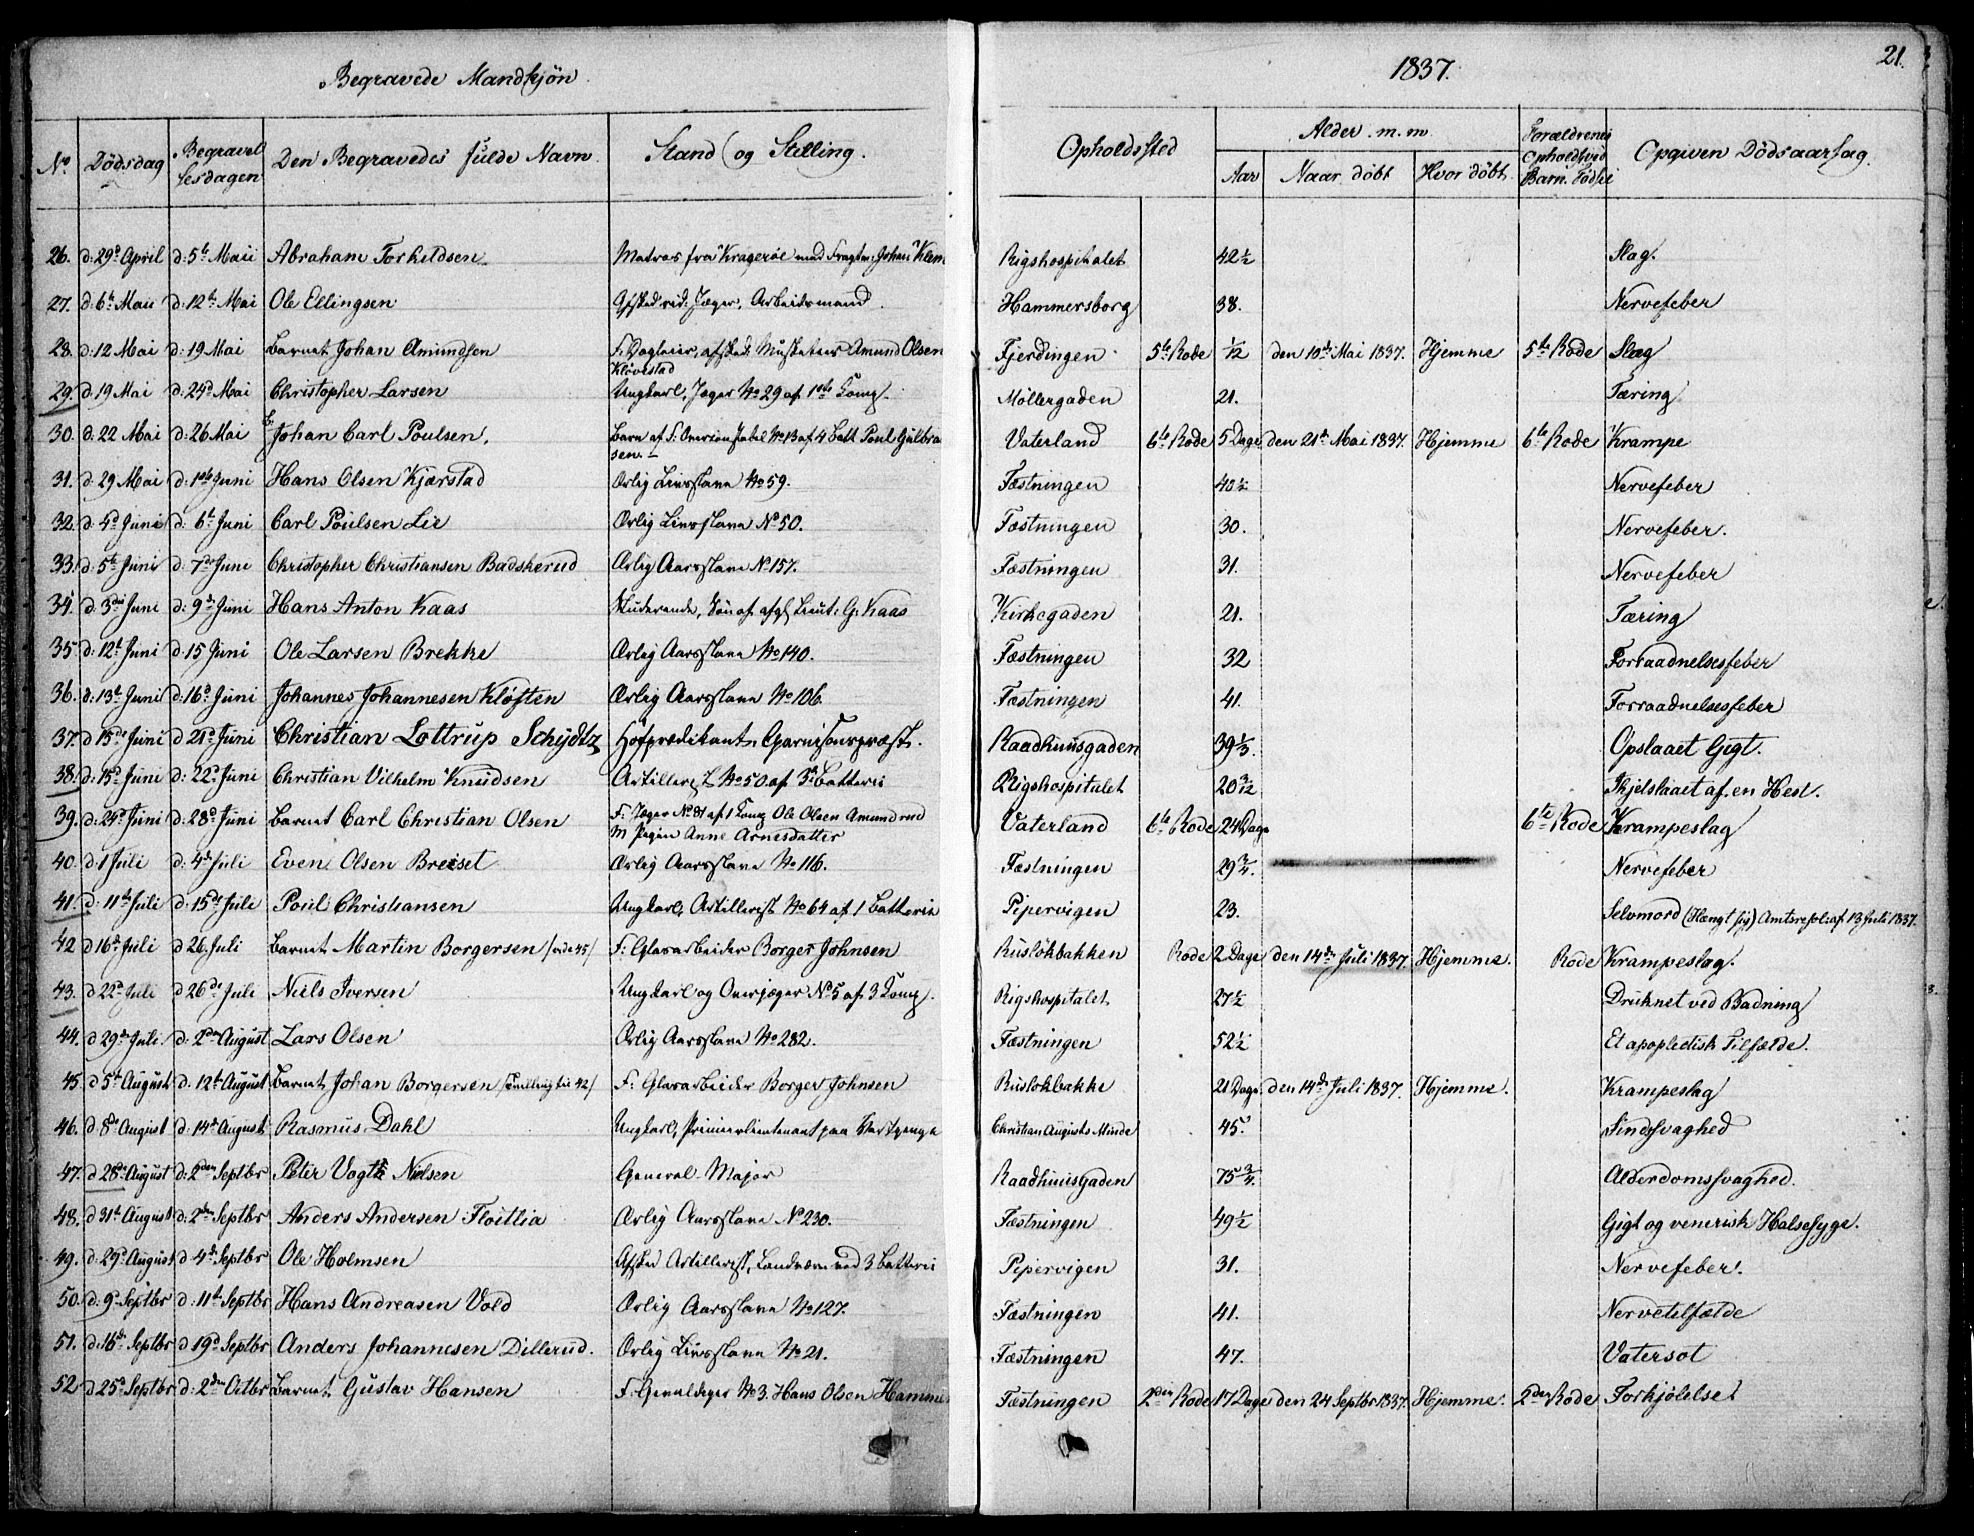 Begravede Mandkjøn. 1837. 21.
No Dødsdag Begravelsesdagen Den Begravedes fulde Navn Stand og Stilling. Opholdssted Alder m. m Aar Naar døbt Hvor døbt Forældrenes Ophold ved Barn. Fødsel Opgiven Dødsaarsag.
26. d: 29d April d: 5te Maii Abraham Torkildsen Matros fra Kragerøe med Johan Klem Rigshospitalet 42½ Slag.
27. d: 6te Maii d: 12te Mai Ole Ellingsen Jæger, Arbeidsmand. Hammersborg 38. Nervefeber
28. d: 12 Mai d: 19 Mai Barnet Johan Amundsen F: Dagleier, afsked: Musketeer Amund Olsen Kløvestad Fjerdingen 5te Rode 1/12 den 10de Mai 1837. Hjemme 5te Rode Slag
29. d. 19 Mai d: 24d Mai Christopher Larsen Ungkarl, Jæger No 29 af 1ste Comp. Møllergaden 21. Tæring
30. d: 22 Mai d: 26 Mai B: Johan Carl Poulsen, Barn af F: No 13 af 4 Batt Poul Gulbrandsen. Vaterland 6te Rode 5 Dage den 21de Mai 1837. Hjemme 6te Rode Krampe
31. d: 29 Mai d: 1ste Juni Hans Olsen Kjærstad Ærlig Livsslave No 59. Fæstningen 40½ Nervefeber
32. d: 4d Juni d: 6te Juni Carl Poulsen Lie Ærlig Livsslave No 50. Fæstningen 30. Nervefeber.
33. d: 5te Juni d: 7de Juni Christopher Christiansen Badskerud Ærlig Aarsslave No 157. Fæstningen 31. Nervefeber
34. d: 3die Juni d: 9de Juni Hans Anton Kaas Studerende, Søn af afg. Lieut: G: Kaas Kirkegaden 21. Tæring
35. d: 12te Juni d: 15 Juni Ole Larsen Brekke Ærlig Aarsslave No 140. Fæstningen 32 Forraadnelsesfeber
36. d: 13te Juni d: 16d Juni Johannes Johannesen Kløften Ærlig Aarsslave No 106. Fæstningen 41. Forraadnelsesfeber
37. d 15de Juni d 21d Juni Christian Lottrup Schydtz Hofprædikant, Garnisonspræst. Raadhuusgaden 39⅓ Opslaaet Gigt.
38. d: 15d Juni d: 22d Juni Christian Vilhelm Knudsen Artillerist No 50 af 5t Batterie Rigshospitalet 20 3/12 Ihjelslaaet af en Hest.
39. d: 24d Juni d: 28d Juni Barnet Carl Christian Olsen F: Jæger No 81 af 1 Comp Ole Olsen Amundrud M Pigen Anne Arnesdatter Vaterland 6te Rode 24 Dage 6te Rode Krampeslag
40. d 1 Juli d: 4de Juli Even Olsen Breiset Ærlig Aarsslave No 116. Fæstningen 29¾. Nervefeber
41. d. 11te Juli d: 15de Juli Poul Christiansen Ungkarl, Artillerist No 64 af 1 Batterie Pipervigen 23. Selvmord (Hængt sig) af 13 Juli 1837.
42 d 16de Juli d 26. Juli Barnet Martin Borgersen /vide 45/ F: Glasarbeider Borger Johnsen Ruslökbakken Rode 2 Dage den 14de Juli 1837. Hjemme. Rode Krampeslag.
43. d 22d Juli d 26de Juli Niels Iversen Ungkarl og Overjæger No 5 af 3 Comp. Rigshospitalet 27½ Druknet ved Badning
44. d 29de Juli. d: 2den August Lars Olsen Ærlig Aarsslave No 282. Fæstningen 52½ Et apoplectisk Tilfælde.
45. d 5te August d. 12te August Barnet Johan Borgersen /Tvilling til 42/ F: Glasarbeider Borger Johnsen Ruslökbakke 21 Dage den 14de Juli 1837. Hjemme. Krampeslag
46. d 8de August d: 14de August Rasmus Dahl Ungkarl, Premierlieutenant paa Vartpenge Christian Augusts Minde 45. Sindssvaghed
47. d 28de August d: 2den Septbr Peter Vogt Nielsen General-Major Raadhuusgaden 75¾. Alderdomssvaghed.
48. d 31te August d: 2den Septbr Anders Andersen Floitlia Ærlig Aarsslave No 230. Fæstningen 49½ Gigt og venerisk Halssyge.
49. d: 29d August d: 4de Septbr Ole Holmsen Afsked Artillerist, Landværn ved 3 Batterie Pipervigen 31. Nervefeber.
50. d: 9d Septbr d: 11te Septbr Hans Andreasen Vold Ærlig Aarsslave No 127. Fæstningen 41. Nervetilfælde
51. d: 16de Septbr d 19d Septbr Anders Johannesen Dillerud. Ærlig Livsslave No 21. Fæstningen 47. Vatersot
52 d 25d Septbr d: 2den Octbr Barnet Gustav Hansen F: Gevaldiger No 3. Hans Olsen Hamme Fæstningen 2den Rode 17 Dage den 24 Septbr 1837. Hjemme. 2den Rode Forkjølelse